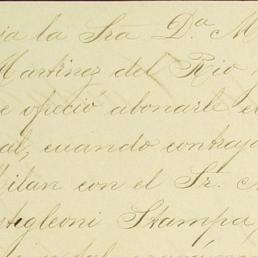 ia la Sra D.a M
Martinez del Rio
e ofreció abonarle el
al, cuando contrajo
ilan con el Sr.
tegleoni Stampa